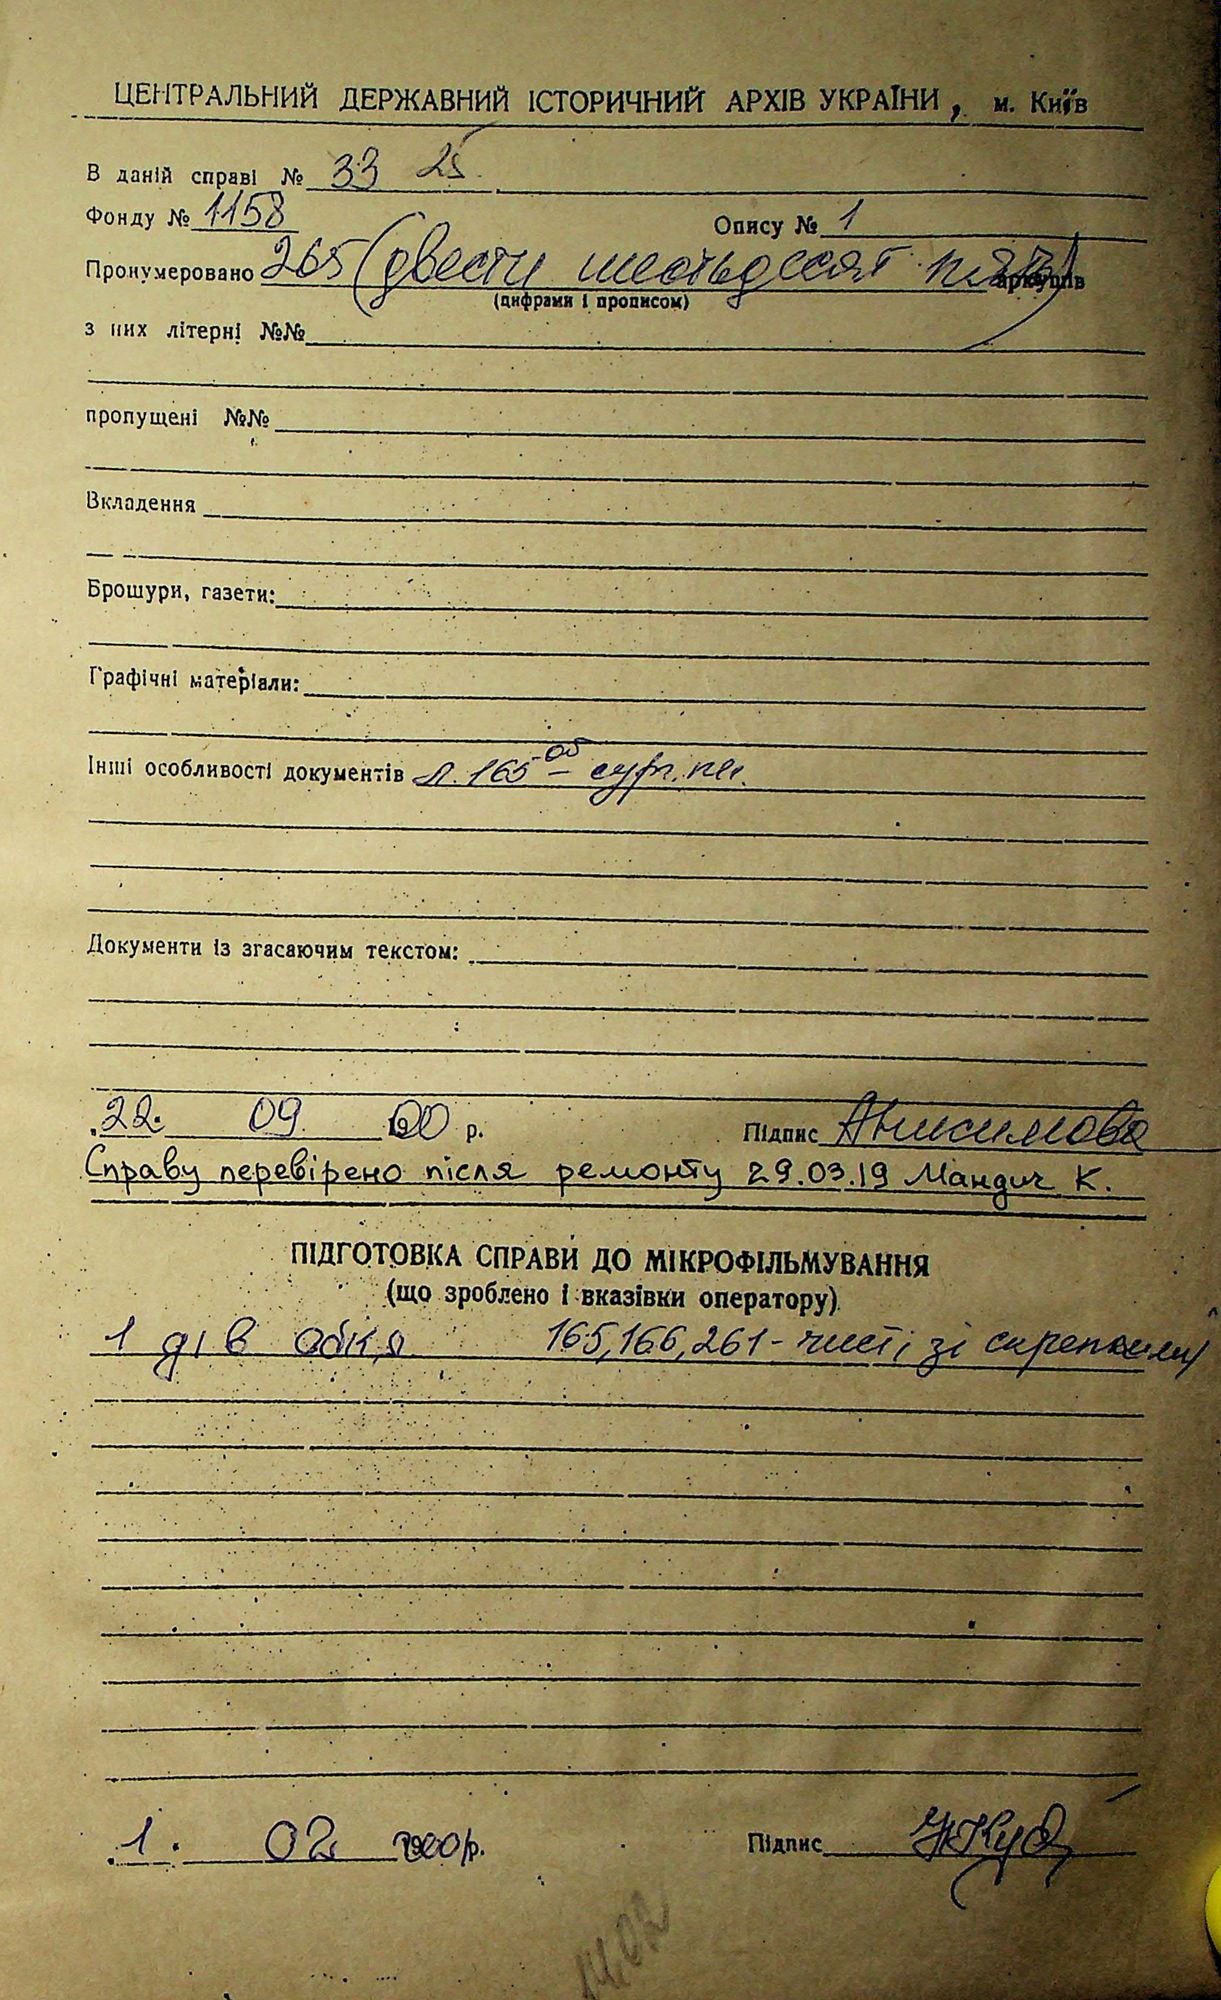 ЦЕНТРАЛЬНИЙ ДЕРЖАВНИЙ ІСТОРИЧНИЙ АРХІВ УКРАЇНИ, м. Київ
В даній справі № 33 25
Фонду № 1158 Опису № 1
Пронумеровано 265 (двести шестьдесят пять) аркушів
(цифрами і прописом)
з них літерні №№
пропущені №№
Вкладення
Брошури, газети:
Графічні матеріали:
Інші особливості документів л. 165 об –
Документи із згасаючим текстом:
22. 09 00 р. Підпис Анисимова
Справу перевірено після ремонту 29.03.19 Мандич К.
ПІДГОТОВКА СПРАВИ ДО МІКРОФІЛЬМУВАННЯ
(що зроблено і вказівки оператору)
1 165, 166, 261 - чисті, зі скрепками
1. 02 р. Підпис
14.02